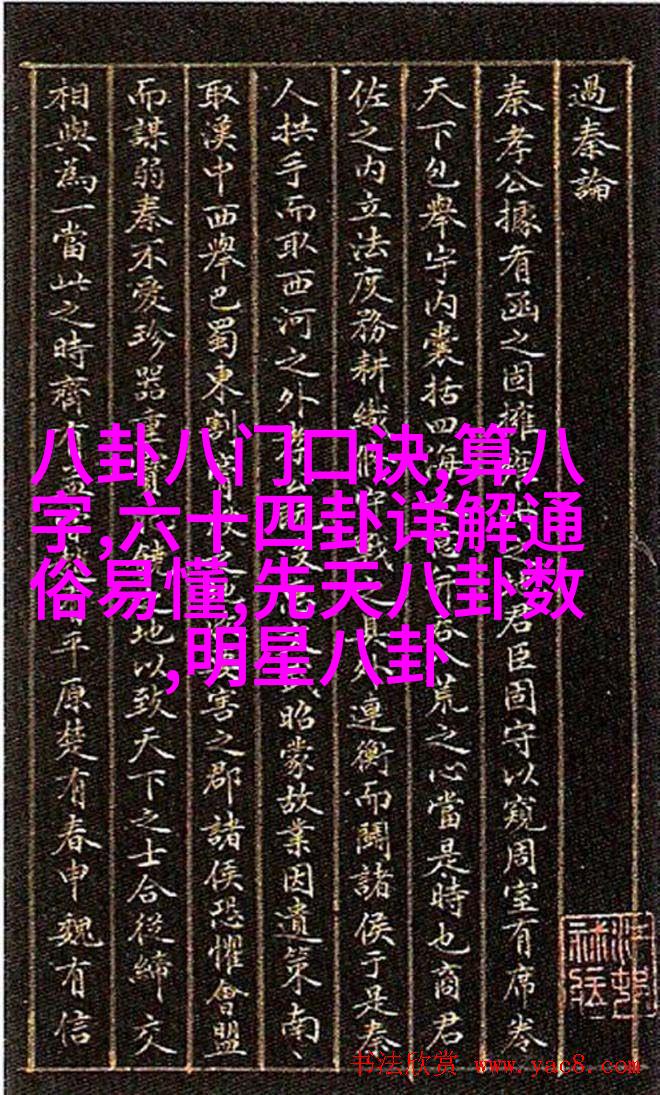 八卦八门口诀,算八
字,六十四卦详解通
俗易懂,先天八卦数
,明星八卦
過秦論
秦孝公據有函之固擁君臣固守以窺周室有席卷
天下包舉宇内囊括四海荒之心當是時也商君
佐之内立法度務耕織連衡而鬭諸侯于是秦
人拱手而取西河之外昭蒙故業因遺策南
取漢中西舉巴蜀東割害之郡諸侯恐懼會盟
而謀弱秦不愛珍器重地以致天下之士合從締交
相與為一當此之時齊平原楚有春申魏有信
书法欣赏 www.yac8.com